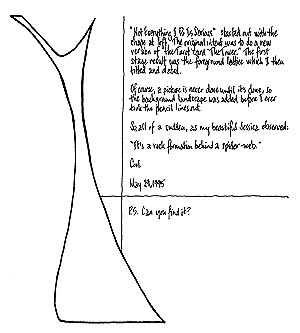 "Not Everything I Do Is Serious" started out with the
shape at left. The original intent was to do a new
version of the Tarot card "The Tower." The first
stage result was the foreground lattice which I then
titled and dated.
Of course, a picture is never done until its done, so
the background landscape was added before I ever
the pencil lines out.
So, all of a sudden, as my beautiful Jessica observed:
"It's a rock formation behind a spider-web."
Cool.
May 29, 1995
P.S. Can you find it?